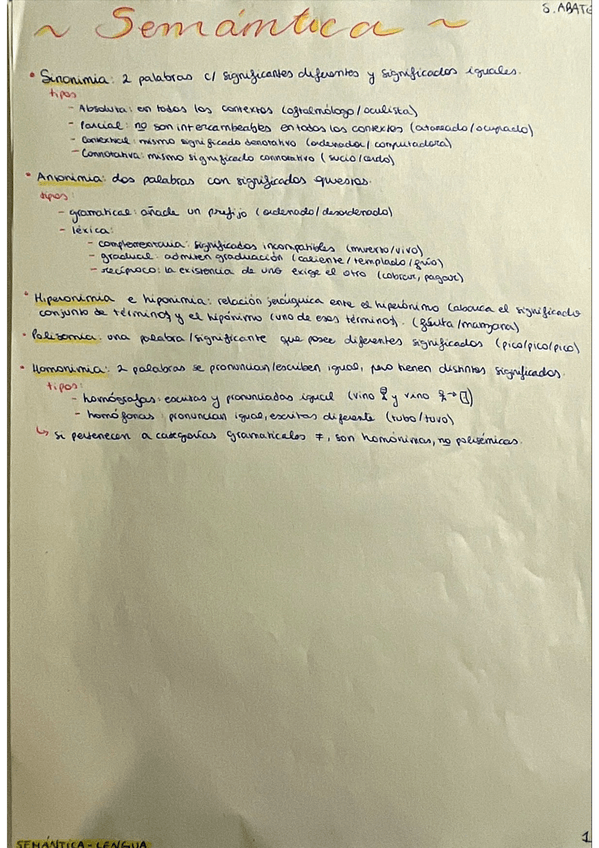 S. ABATE
~ Semántica ~
• Sinonimia: 2 palabras c/ significantes diferentes y significados iguales.
tipos
- Absoluta: en todos los contextos (oftalmólogo/oculista)
- Parcial: no son intercambeables en todos los contextos (atareado/ocupado)
- Contextual: mismo significado denotativo (ordenador/computadora)
- Connotativa: mismo significado connotativo (sucio/cerdo)
• Antonimia: dos palabras con significados opuestos.
tipos:
- gramatical: añade un prefijo (ordenado/desordenado)
- léxica:
- complementaria: significados incompatibles (muerto/vivo)
- gradual: admiten graduación (caliente/templado/frío)
- recíproco: la existencia de uno exige el otro (cobrar, pagar)
• Hiperonimia e hiponimia: relación jerárquica entre el hiperónimo (abarca el significado
conjunto de términos) y el hipónimo (uno de esos términos). (fruta/manzana)
• Polisemia: una palabra/significante que posee diferentes significados (pico/pico/pico)
• Homonimia: 2 palabras se pronuncian/escriben igual, pero tienen distintos significados.
tipos:
- homógrafas: escritas y pronunciadas igual (vino y vino)
- homófonas: pronuncian igual, escritas diferente (tubo/tuvo)
↳ si pertenecen a categorías gramaticales ≠, son homónimas, no polisémicas.
SEMÁNTICA - LENGUA
1